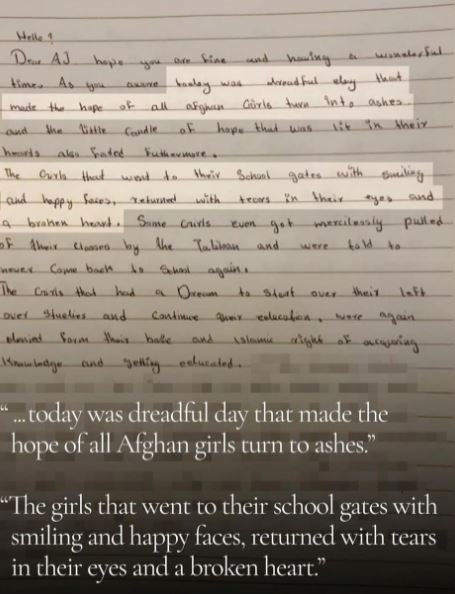 Hello !
Dear AJ hope you are fine and having a wonderful
time. As you aware today was dreadful day that
made the hope of all afghan Girls turn into ashes
and the little Candle of hope that was lit in their
hearts also faded Futhermore.
The Girls that went to their School gates with smiling
and happy faces, returned with tears in their eyes and
a broken heart. Some Girls even got mercilessly pulled
of their Classes by the Taliban and were told to
never Come back to School again.
The Girls that had a Dream to start over their left
over studies and Continue their education, were again
form their and islamic right of acquiring
Knowledge and getting educated.
“ ...today was dreadful day that made the
hope of all Afghan girls turn to ashes.”
“The girls that went to their school gates with
smiling and happy faces, returned with tears
in their eyes and a broken heart.”